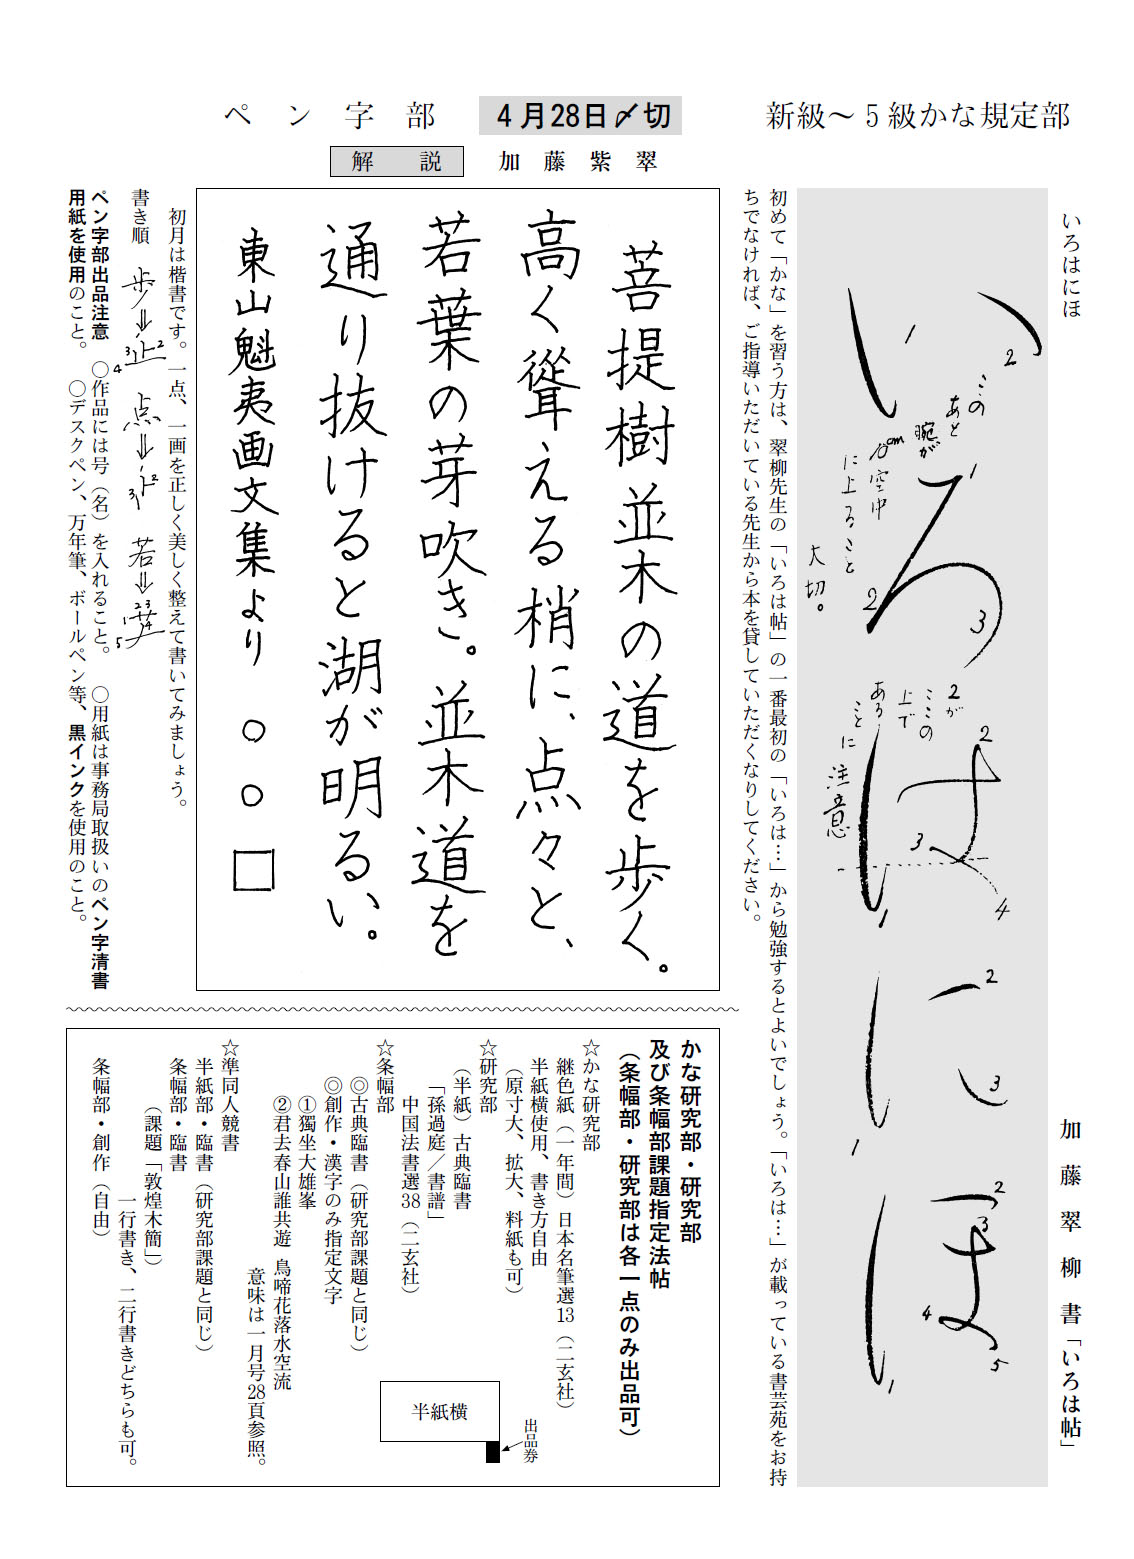 新級～５級かな規定部
いろはにほ
加藤翠柳書「いろは帖」
い
ろ
は
に
ほ
1
2
このあと
腕が
10cm空中
に上ること
大切。
1
2
3
2が
ここの
上で
ある
ことに
注意
2
3
4
1
2
3
1
2
3
4
5
1
初めて「かな」を習う方は、翠柳先生の「いろは帖」の一番最初の「いろは…」から勉強するとよいでしょう。「いろは…」が載っている書芸苑をお持
ちでなければ、ご指導いただいている先生から本を貸していただくなりしてください。
ペン字部
4月28日〆切
解説
加藤紫翠
菩提樹並木の道を歩く。
高く聳える梢に、点々と、
若葉の芽吹き。並木道を
通り抜けると湖が明るい。
東山魁夷画文集より ○○□
初月は楷書です。一点、一画を正しく美しく整えて書いてみましょう。
書き順 歩⇒止 点⇒ 若⇒
ペン字部出品注意 ○作品には号（名）を入れること。 ○用紙は事務局取扱いのペン字清書
用紙を使用のこと。 ○デスクペン、万年筆、ボールペン等、黒インクを使用のこと。
かな研究部・研究部
及び条幅部課題指定法帖
（条幅部・研究部は各一点のみ出品可）
☆かな研究部
継色紙（一年間）日本名筆選13（二玄社）
半紙横使用、書き方自由
（原寸大、拡大、料紙も可）
☆研究部
（半紙）古典臨書
「孫過庭／書譜」
中国法書選38（二玄社）
☆条幅部
◎古典臨書（研究部課題と同じ）
◎創作・漢字のみ指定文字
①獨坐大雄峯
②君去春山誰共遊 鳥啼花落水空流
意味は一月号28頁参照。
☆準同人競書
半紙部・臨書（研究部課題と同じ）
条幅部・臨書
（課題「敦煌木簡」）
一行書き、二行書きどちらも可。
条幅部・創作（自由）
半紙横
出品券